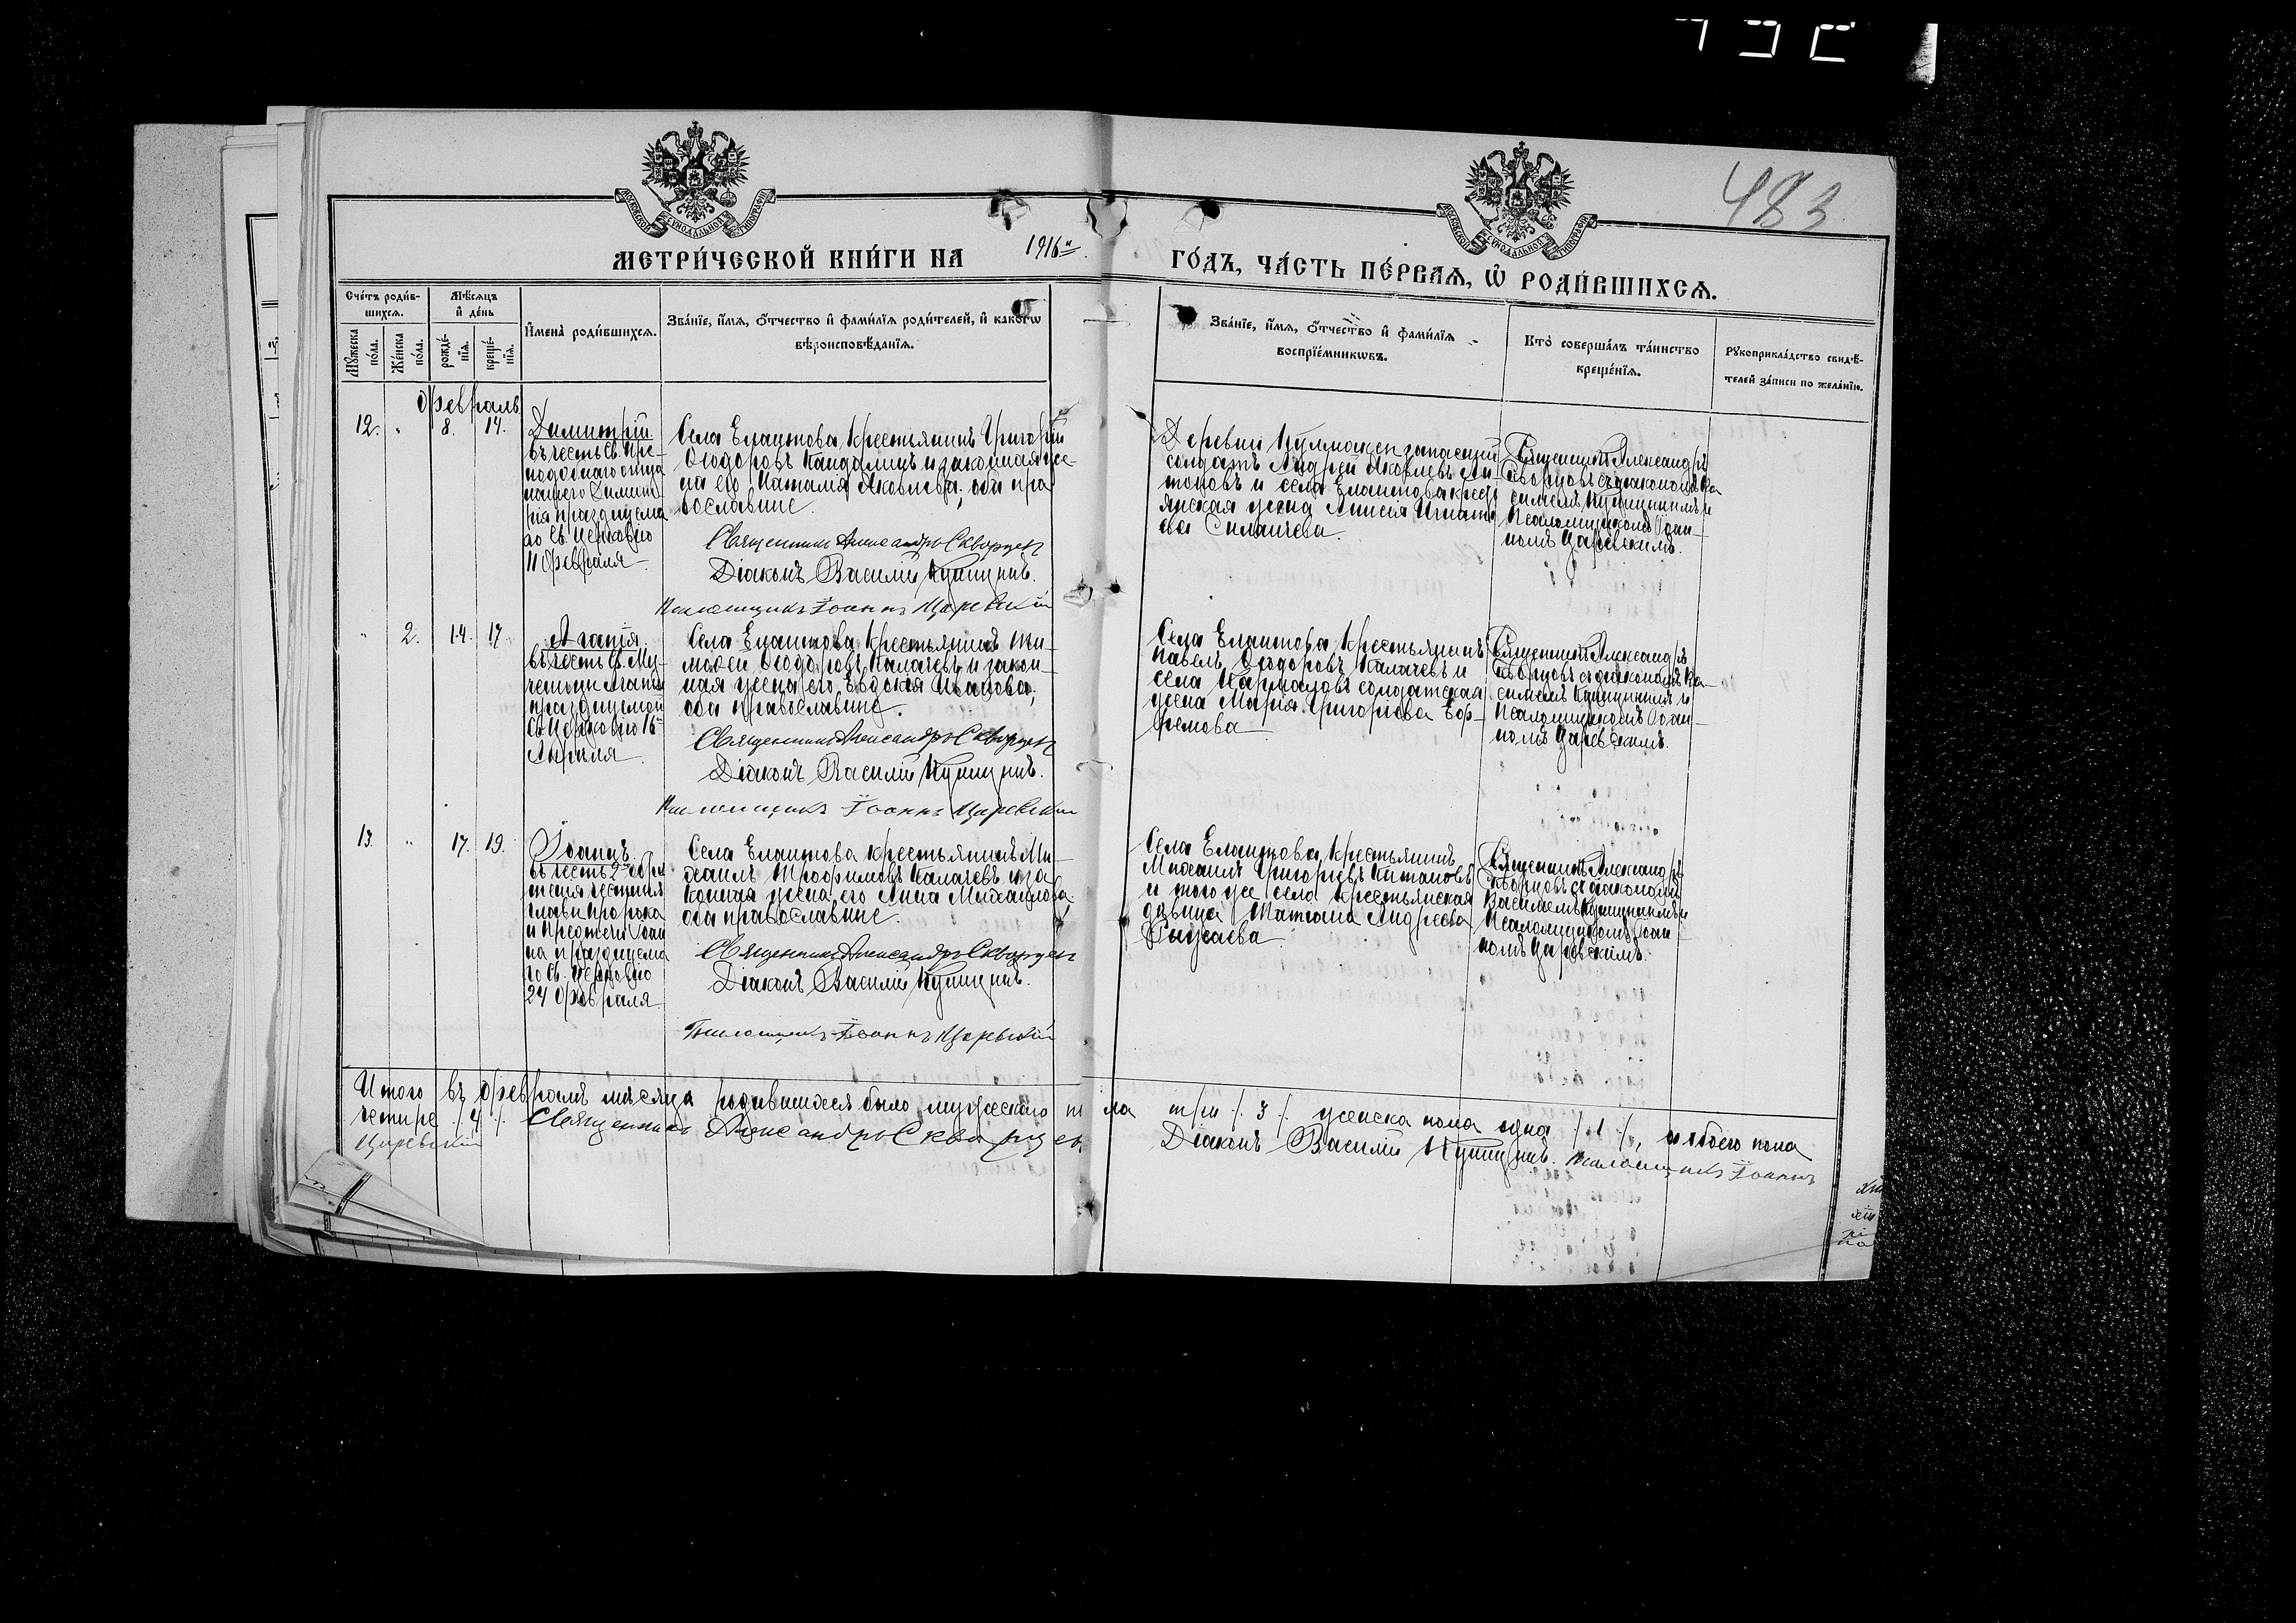 483
МОСКОВСКОЙ СѴНОДАЛЬНОЙ ТИПОГРАФІИ
МОСКОВСКОЙ СѴНОДАЛЬНОЙ ТИПОГРАФІИ
МЕТРИ́ЧЕСКОЙ КНИ́ГИ НА 1916й ГО́ДЪ, ЧА́СТЬ ПЕ́РВАѦ, Ѿ РОДИ́ВШИХСѦ.
Сче́тъ роди́в-
шихсѧ.
Мꙋжеска по́ла.
Же́нска по́ла.
Мѣ́сяцъ
и҆ де́нь
рожде́-
нїѧ.
креще́-
нїѧ.
И҆мена̀ роди́вшихсѧ.
Зва́нїе, и҆́мѧ, ѻ҆́тчество и҆ фами́лїѧ роди́телей, и҆ како́гѡ
вѣроисповѣ́данїѧ.
Зва́нїе, и҆́мѧ, ѻ҆́тчество и҆ фами́лїѧ
воспрїе́мникѡвъ.
Кто̀ соверша́лъ та́инство
креще́нїѧ.
Рꙋкоприкла́дство свидѣ́-
телей за́писи по жела́нїю.
Февраль
12. " 8. 14.
Димитрій
въ честь Св. Пре-
подобнаго отца
нашего Димит-
рія празднуема
го Св. Церковію
11 Февраля
Села Елаитова крестьянинъ Григорій
Ѳеодоровъ Кандалицъ и законная же-
на его Наталія Яковлева; оба пра
вославные.
Священникъ Александръ Скворцевъ
Діаконъ Василій Купицынъ.
Псаломщикъ Іоаннъ Царевскій
Деревни запасный
солдатъ Андрей Яковлевъ Ан-
тоновъ и села Елаитова крест
янская жена Анисія Игнать
ева Силаичева.
Священникъ Александръ
Скворцовъ съ діакономъ Ва
силіемъ Купицынымъ и
Псаломщикомъ Іоан-
номъ Царевскимъ.
" 2. 14. 17.
Агаѳія
въ честь Св. Му-
ченицы Агаѳіи
празднуемой
Св. Церковію 16
Апрѣля
Села Елаитова крестьянинъ Ти-
моѳей Ѳеодоровъ Калачевъ и закон-
ная жена его Евдокія Иванова;
оба православные.
Священникъ Александръ Скворцевъ
Діаконъ Василій Купицынъ.
Псаломщикъ Іоаннъ Царевскій
Села Елаитова крестьянинъ
Павелъ Ѳеодоровъ Калачевъ и
села Кармаловъ солдатская
жена Марія Григорьева Еф-
ремова
Священникъ Александръ
Скворцовъ съ діакономъ Ва-
силіемъ Купицынымъ и
Псаломщикомъ Іоан-
номъ Царевскимъ.
13. " 17. 19.
Іоаннъ
въ честь 2го обрѣ
тенія честныя
главы пророка
и Предтечи Іоан
на празднуема
го Св. Церковію
24 Февраля
Села Елаитова крестьянинъ Ми-
хаилъ Трофимовъ Калачевъ и за
конная жена его Анна Михаилова
оба православные.
Священникъ Александръ Скворцевъ
Діаконъ Василій Купицынъ.
Псаломщикъ Іоаннъ Царевскій
Села Елаитова крестьянинъ
Михаилъ Григорьевъ Китановъ
и того же села крестьянская
дѣвица Татіана Андреева
Священникъ Александръ
Скворцовъ съ діакономъ
Василіемъ Купицынымъ и
Псаломщикомъ Іоан-
номъ Царевскимъ.
Итого въ Февралѣ мѣсяца родившихся было мужеского пола три /3/ женска пола одна /1/, и обоего пола
четыре /4/. Священникъ Александръ Скворцевъ. Діаконъ Василій Купицынъ. Псаломщикъ Іоаннъ
Царевскій